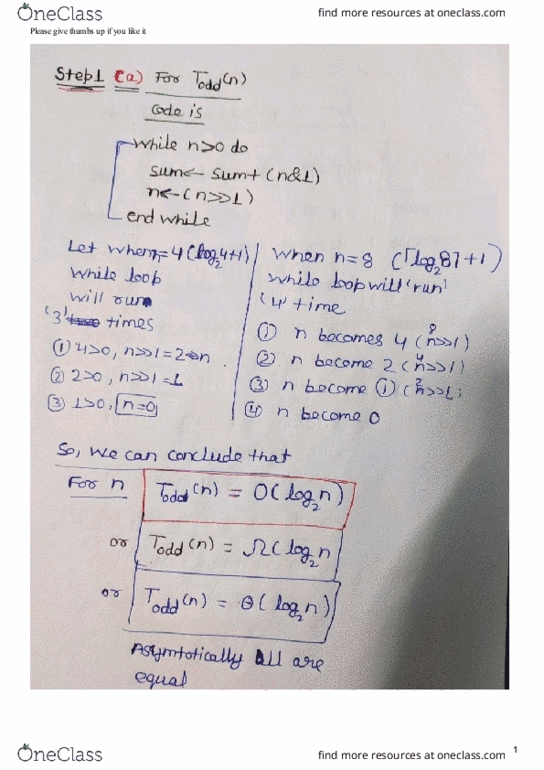 OneClass
find more resources at oneclass.com
Please give thumbs up if you like it
Step1 (a) For Todd(n)
Code is
while n>0 do
sum← sum+ (n&1)
n←(n>>1)
end while
Let when n=4 (log₂4+1)
while loop
will run
'3' times
① 4>0, n>>1=2→n
② 2>0, n>>1=1
③ 1>0, n=0
when n=8 (⌈log₂8⌉+1)
while loop will 'run'
'4' time
① n becomes 4 (8>>1)
② n become 2 (4>>1)
③ n become ① (2>>1)
④ n become 0
So, we can conclude that
For n Todd(n) = O(log₂n)
or Todd(n) = Ω(log₂n
or Todd(n) = θ(log₂n)
Asymtotically All are
equal
OneClass
find more resources at oneclass.com
1